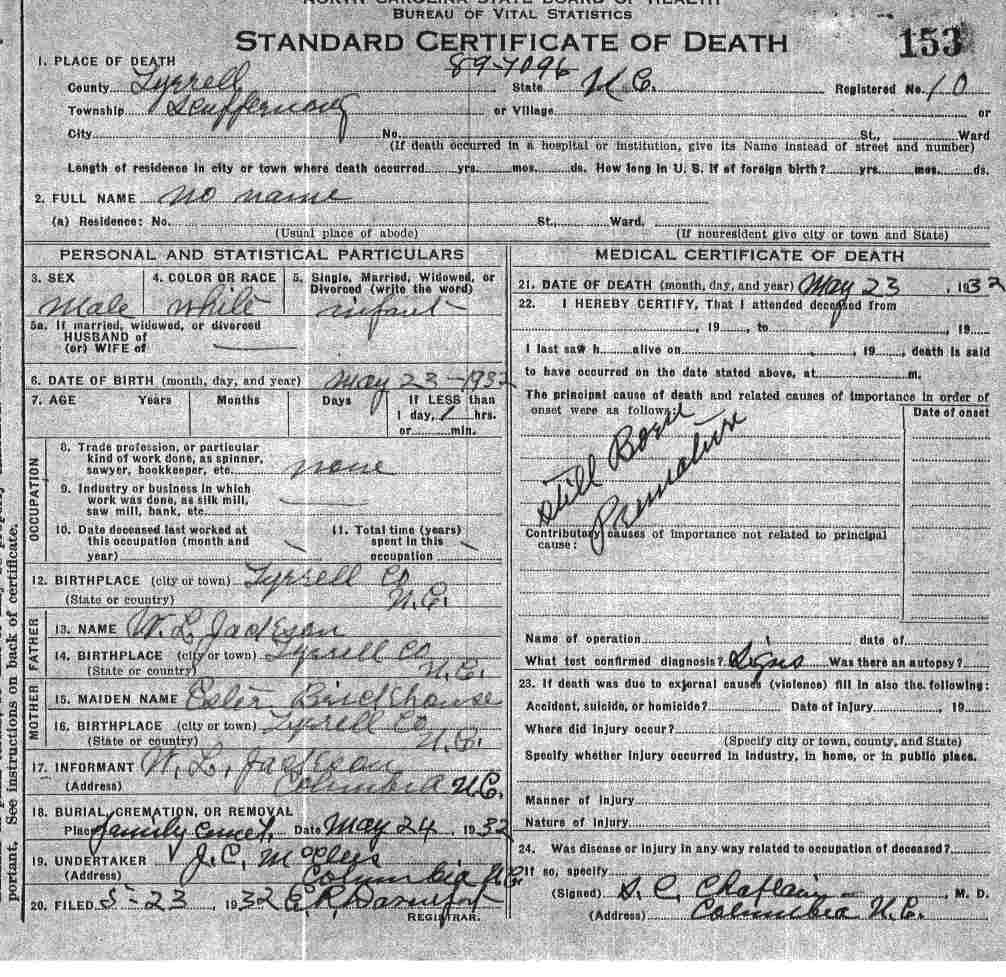 NORTH CAROLINA STATE BOARD OF HEALTH
BUREAU OF VITAL STATISTICS
STANDARD CERTIFICATE OF DEATH
153
1. PLACE OF DEATH 89-7096
County Tyrrell State N.C. Registered No. 10
Township Scuppernong or Village or
City No. St., Ward
(If death occurred in a hospital or institution, give its Name instead of street and number)
Length of residence in city or town where death occurred yrs. mos. ds. How long in U. S. if of foreign birth? yrs. mos. ds.
2. FULL NAME no name
(a) Residence: No. St., Ward.
(Usual place of abode) (If nonresident give city or town and State)
PERSONAL AND STATISTICAL PARTICULARS
3. SEX 4. COLOR OR RACE 5. Single, Married, Widowed, or
Divorced (write the word)
Male white infant
5a. If married, widowed, or divorced
HUSBAND of
(or) WIFE of
6. DATE OF BIRTH (month, day, and year) May 23-1932
7. AGE Years Months Days If LESS than
1 day, hrs.
or min.
OCCUPATION
8. Trade profession, or particular
kind of work done, as spinner,
sawyer, bookkeeper, etc. none
9. Industry or business in which
work was done, as silk mill,
saw mill, bank, etc.
10. Date deceased last worked at
this occupation (month and
year)
11. Total time (years)
spent in this
occupation
12. BIRTHPLACE (city or town) Tyrrell Co
(State or country) N.C.
FATHER
13. NAME W. L. Jackson
14. BIRTHPLACE (city or town) Tyrrell Co
(State or country) N.C.
MOTHER
15. MAIDEN NAME Brickhouse
16. BIRTHPLACE (city or town) Tyrrell Co
(State or country) N.C.
17. INFORMANT W. L. Jackson
(Address) Columbia N.C.
18. BURIAL, CREMATION, OR REMOVAL
Place family Cemet. Date May 24, 1932
19. UNDERTAKER J. C. McClees
(Address) Columbia N.C.
20. FILED 5-23 1932
REGISTRAR.
MEDICAL CERTIFICATE OF DEATH
21. DATE OF DEATH (month, day, and year) May 23, 1932
22. I HEREBY CERTIFY, That I attended deceased from
, 19 , to , 19
I last saw h alive on , 19 , death is said
to have occurred on the date stated above, at m.
The principal cause of death and related causes of importance in order of
onset were as follows:
Date of onset
Still Born
Premature
Contributory causes of importance not related to principal
cause:
Name of operation date of
What test confirmed diagnosis? Signs Was there an autopsy?
23. If death was due to external causes (violence) fill in also the following:
Accident, suicide, or homicide? Date of injury , 19
Where did injury occur?
(Specify city or town, county, and State)
Specify whether injury occurred in industry, in home, or in public place.
Manner of injury
Nature of injury
24. Was disease or injury in any way related to occupation of deceased?
If so, specify
(Signed) S. C. Chaplain M. D.
(Address) Columbia N.C.
portant. See instructions on back of certificate.